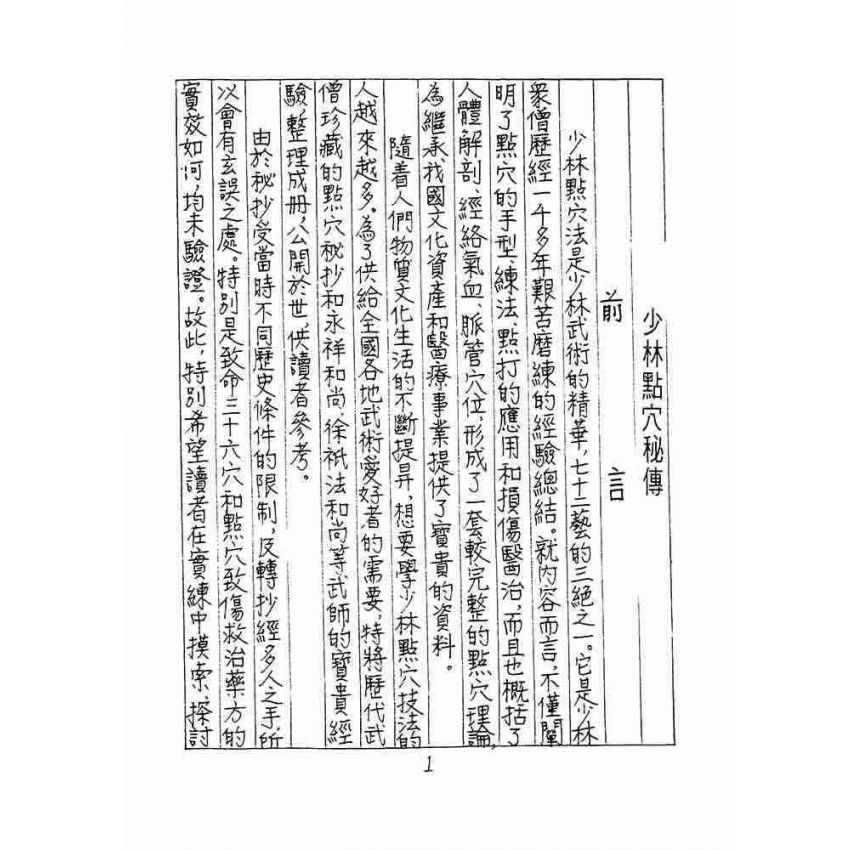 少林點穴秘傳
前言
少林點穴法是少林武術的精華,七十二藝的三絕之一。它是少林
衆僧歷經一千多年艱苦磨練的經驗總結。就內容而言,不僅闡
明了點穴的手型、練法、點打的應用和損傷醫治,而且也概括了
人體解剖、經絡氣血、脈管穴位,形成了一套較完整的點穴理論,
為繼承我國文化資產和醫療事業提供了寶貴的資料。
隨着人們物質文化生活的不斷提昇,想要學少林點穴技法的
人越來越多。為了供給全國各地武術愛好者的需要,特將歷代武
僧珍藏的點穴秘抄和永祥和尚、徐祇法和尚等武師的寶貴經
驗,整理成冊,公開於世,供讀者參考。
由於秘抄受當時不同歷史條件的限制,及轉抄經多人之手,所
以會有玄誤之處。特別是致命三十六穴和點穴致傷救治藥方的
實效如何,均未驗證。故此,特別希望讀者在實練中摸索、探討
1